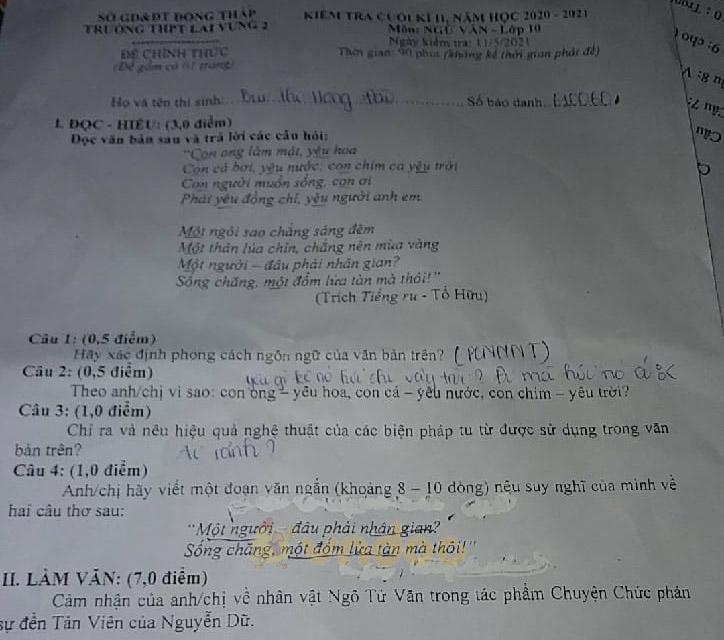 SỞ GD&ĐT ĐỒNG THÁP
TRƯỜNG THPT LAI VUNG 2
ĐỀ CHÍNH THỨC
(Đề gồm có 01 trang)
KIỂM TRA CUỐI KÌ II, NĂM HỌC 2020 - 2021
Môn: NGỮ VĂN - Lớp 10
Ngày kiểm tra: 11/5/2021
Thời gian: 90 phút (không kể thời gian phát đề)
Họ và tên thí sinh: Số báo danh:
I. ĐỌC - HIỂU: (3,0 điểm)
Đọc văn bản sau và trả lời các câu hỏi:
"Con ong làm mật, yêu hoa
Con cá bơi, yêu nước; con chim ca yêu trời
Con người muốn sống, con ơi
Phải yêu đồng chí, yêu người anh em.
Một ngôi sao chẳng sáng đêm
Một thân lúa chín, chẳng nên mùa vàng
Một người – đâu phải nhân gian?
Sống chăng, một đốm lửa tàn mà thôi!"
(Trích Tiếng ru - Tố Hữu)
Câu 1: (0,5 điểm)
Hãy xác định phong cách ngôn ngữ của văn bản trên? (PCNNNT)
Câu 2: (0,5 điểm)
Theo anh/chị vì sao: con ong – yêu hoa, con cá – yêu nước, con chim – yêu trời?
Câu 3: (1,0 điểm)
Chỉ ra và nêu hiệu quả nghệ thuật của các biện pháp tu từ được sử dụng trong văn
bản trên?
Câu 4: (1,0 điểm)
Anh/chị hãy viết một đoạn văn ngắn (khoảng 8 – 10 dòng) nêu suy nghĩ của mình về
hai câu thơ sau:
"Một người – đâu phải nhân gian?
Sống chăng, một đốm lửa tàn mà thôi!"
II. LÀM VĂN: (7,0 điểm)
Cảm nhận của anh/chị về nhân vật Ngô Tử Văn trong tác phẩm Chuyện Chức phán
sự đền Tản Viên của Nguyễn Dữ.